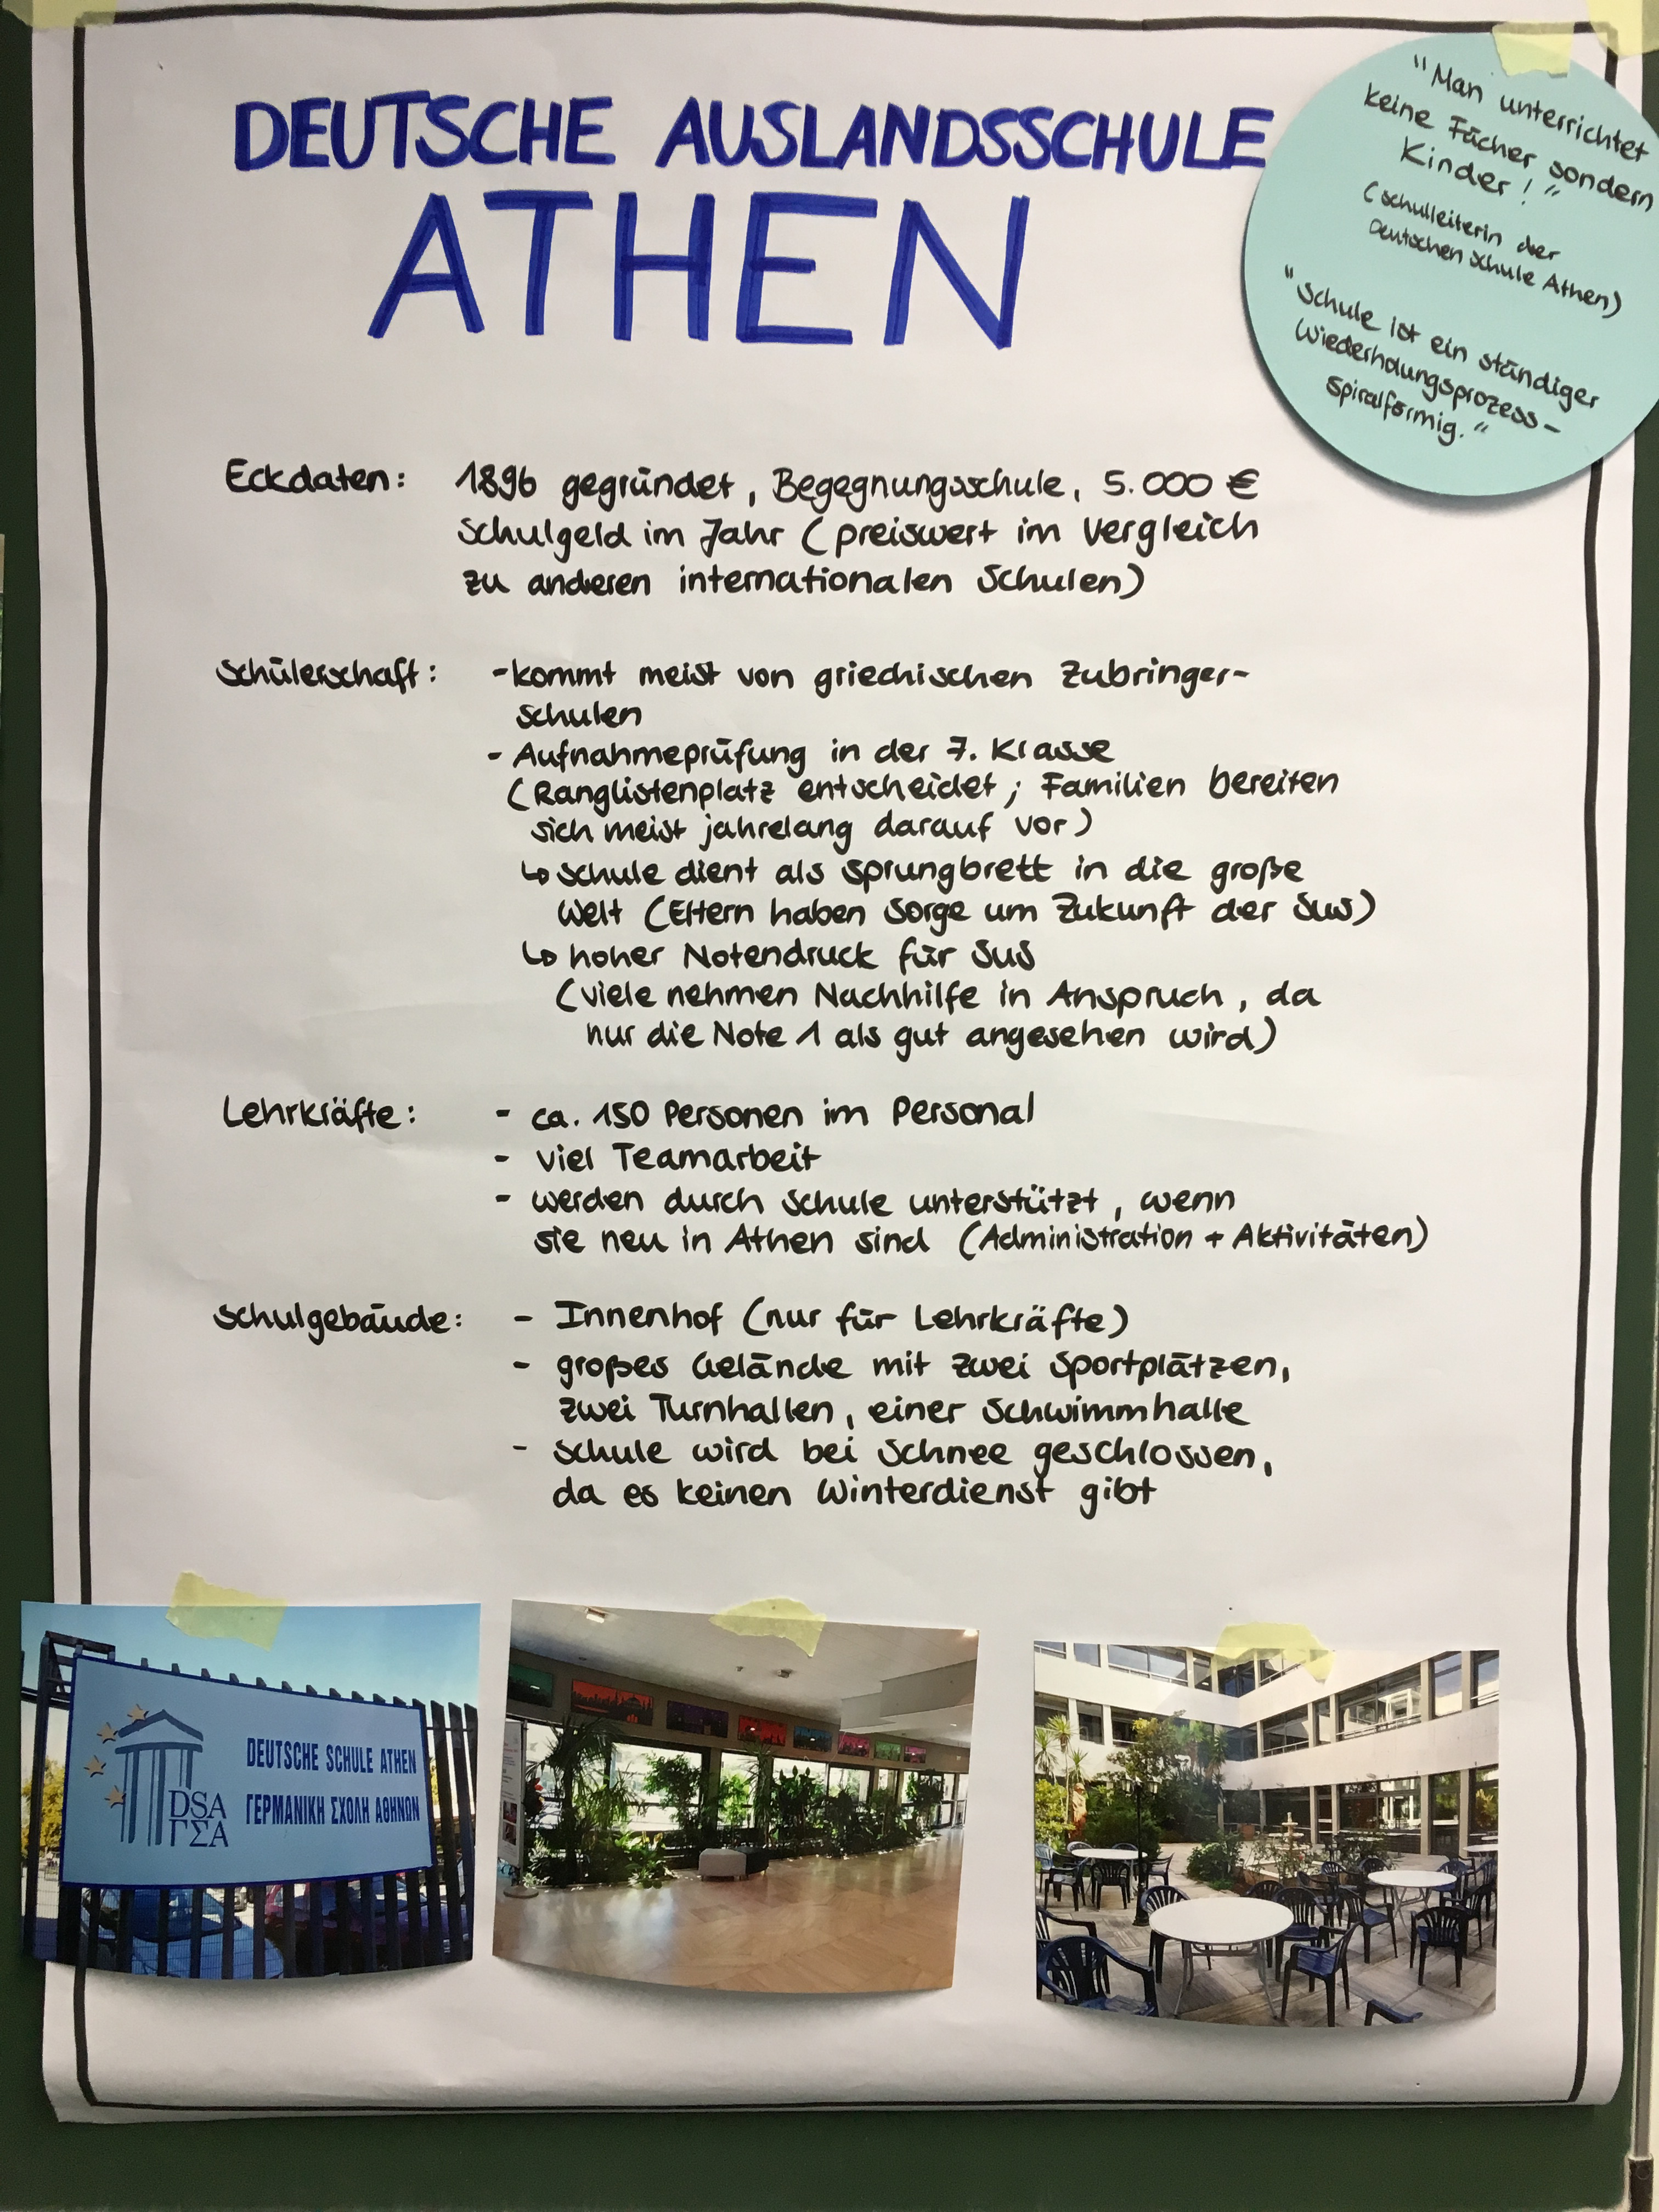 DEUTSCHE AUSLANDSSCHULE
ATHEN
"Man unterrichtet
keine Fächer sondern
Kinder!"
(Schulleiterin der
Deutschen Schule Athen)
"Schule ist ein ständiger
Wiederholungsprozess-
spiralförmig."
Eckdaten: 1896 gegründet, Begegnungsschule, 5.000 €
Schulgeld im Jahr (preiswert im Vergleich
zu anderen internationalen Schulen)
Schülerschaft: -kommt meist von griechischen Zubringer-
schulen
- Aufnahmeprüfung in der 7. Klasse
(Ranglistenplatz entscheidet; Familien bereiten
sich meist jahrelang darauf vor)
↳ Schule dient als Sprungbrett in die große
Welt (Eltern haben Sorge um Zukunft der SuS)
↳ hoher Notendruck für SuS
(viele nehmen Nachhilfe in Anspruch, da
nur die Note 1 als gut angesehen wird)
Lehrkräfte: - ca. 150 Personen im Personal
- viel Teamarbeit
- werden durch Schule unterstützt, wenn
sie neu in Athen sind (Administration + Aktivitäten)
Schulgebäude: - Innenhof (nur für Lehrkräfte)
- großes Gelände mit zwei Sportplätzen,
zwei Turnhallen, einer Schwimmhalle
- Schule wird bei Schnee geschlossen,
da es keinen Winterdienst gibt
DSA
ΓΣΑ
DEUTSCHE SCHULE ATHEN
ΓΕΡΜΑΝΙΚΗ ΣΧΟΛΗ ΑΘΗΝΩΝ